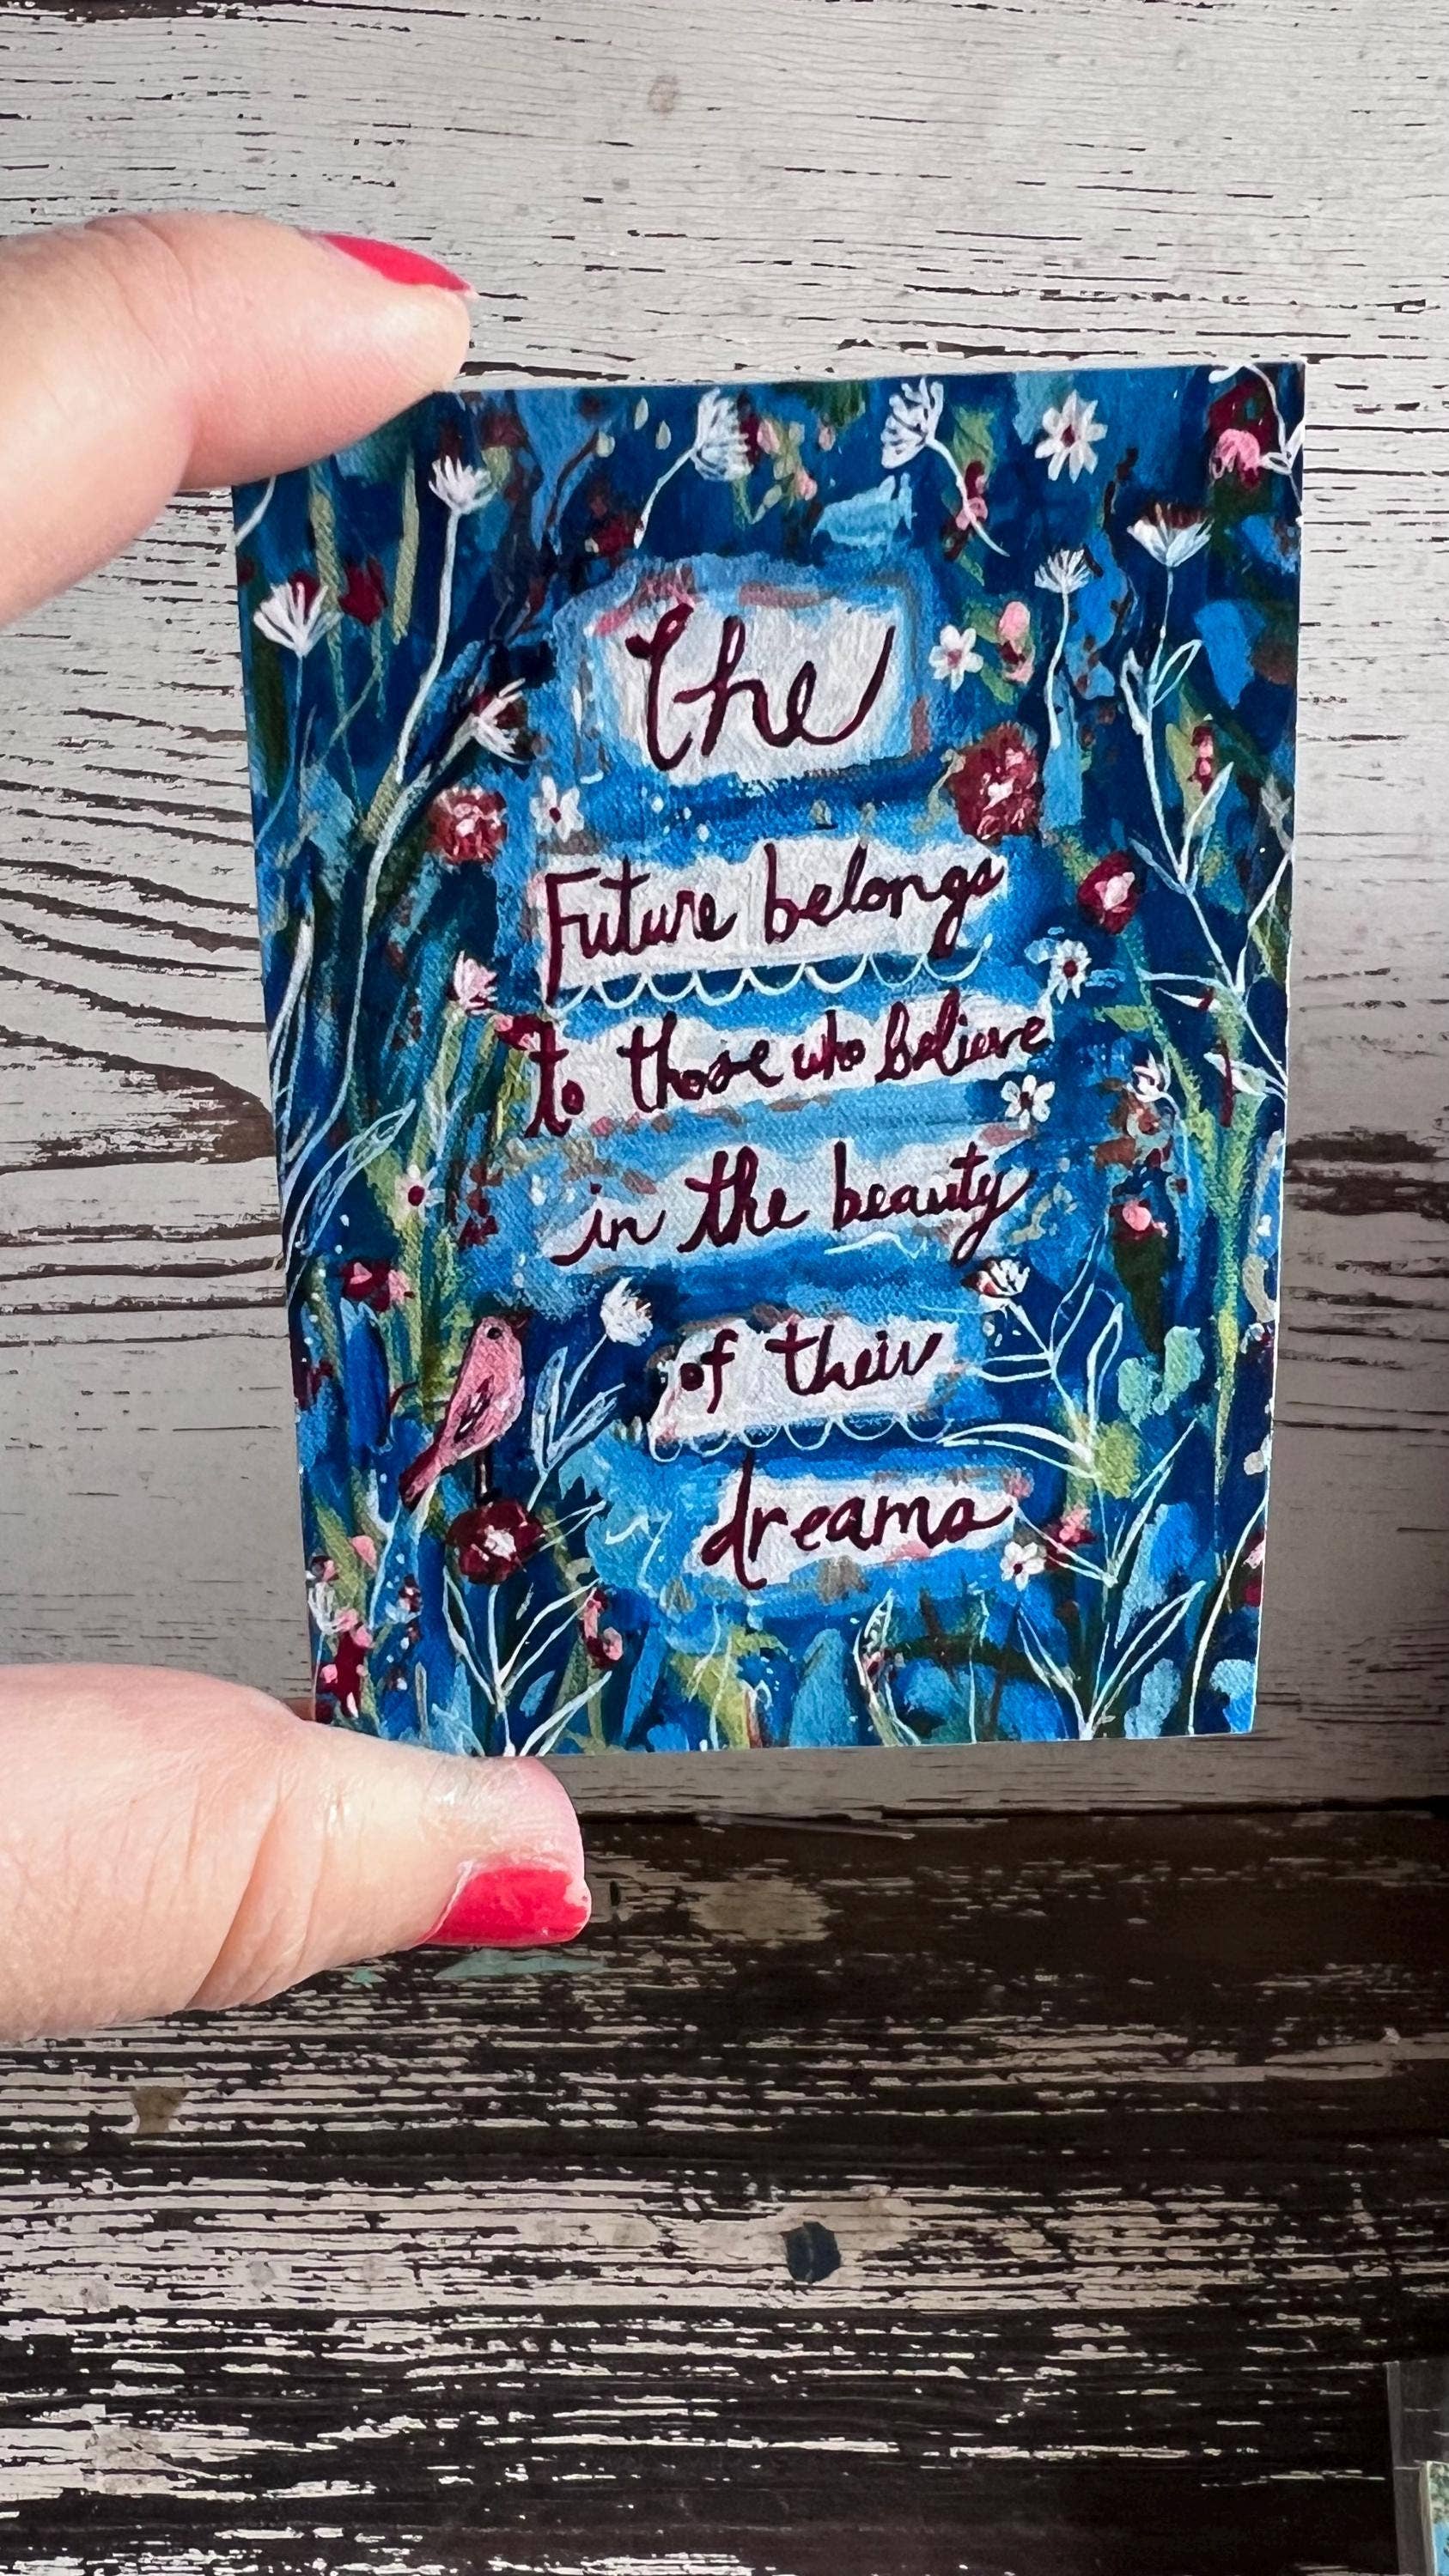 the
Future belongs
to those who believe
in the beauty
of their
dreams